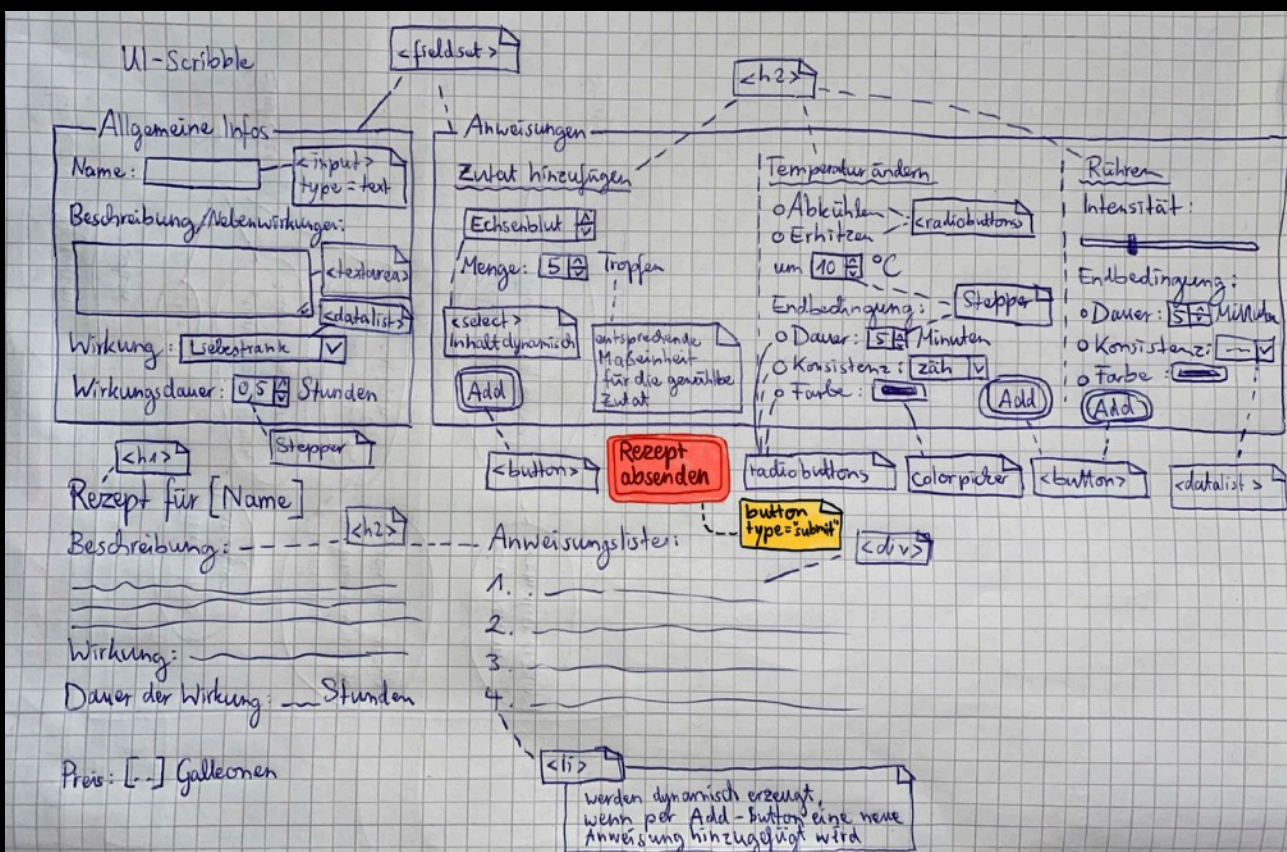 UI-Scribble
<fieldset>
<h2>
Allgemeine Infos
Name:
<input>
type=text
Beschreibung/Nebenwirkungen:
<textarea>
<datalist>
Wirkung: Liebestrank
Wirkungsdauer: 0,5 Stunden
Stepper
Anweisungen
Zutat hinzufügen
Echsenblut
Menge: 5 Tropfen
<select>
Inhalt dynamisch
entsprechende
Maßeinheit
für die gewählte
Zutat
Add
<button>
Temperatur ändern
Abkühlen
Erhitzen
<radiobuttons>
um 10 °C
Stepper
Endbedingung:
Dauer: 5 Minuten
Konsistenz: zäh
Farbe:
Add
radiobuttons
colorpicker
<button>
Rühren
Intensität:
Endbedingung:
Dauer: 5 Minuten
Konsistenz: --
Farbe:
Add
<datalist>
Rezept
absenden
button
type="submit"
<h1>
Rezept für [Name]
<h2>
Beschreibung:
Wirkung:
Dauer der Wirkung: __ Stunden
Preis: [--] Galleonen
Anweisungsliste:
<div>
1.
2.
3.
4.
<li>
werden dynamisch erzeugt,
wenn per Add-Button eine neue
Anweisung hinzugefügt wird